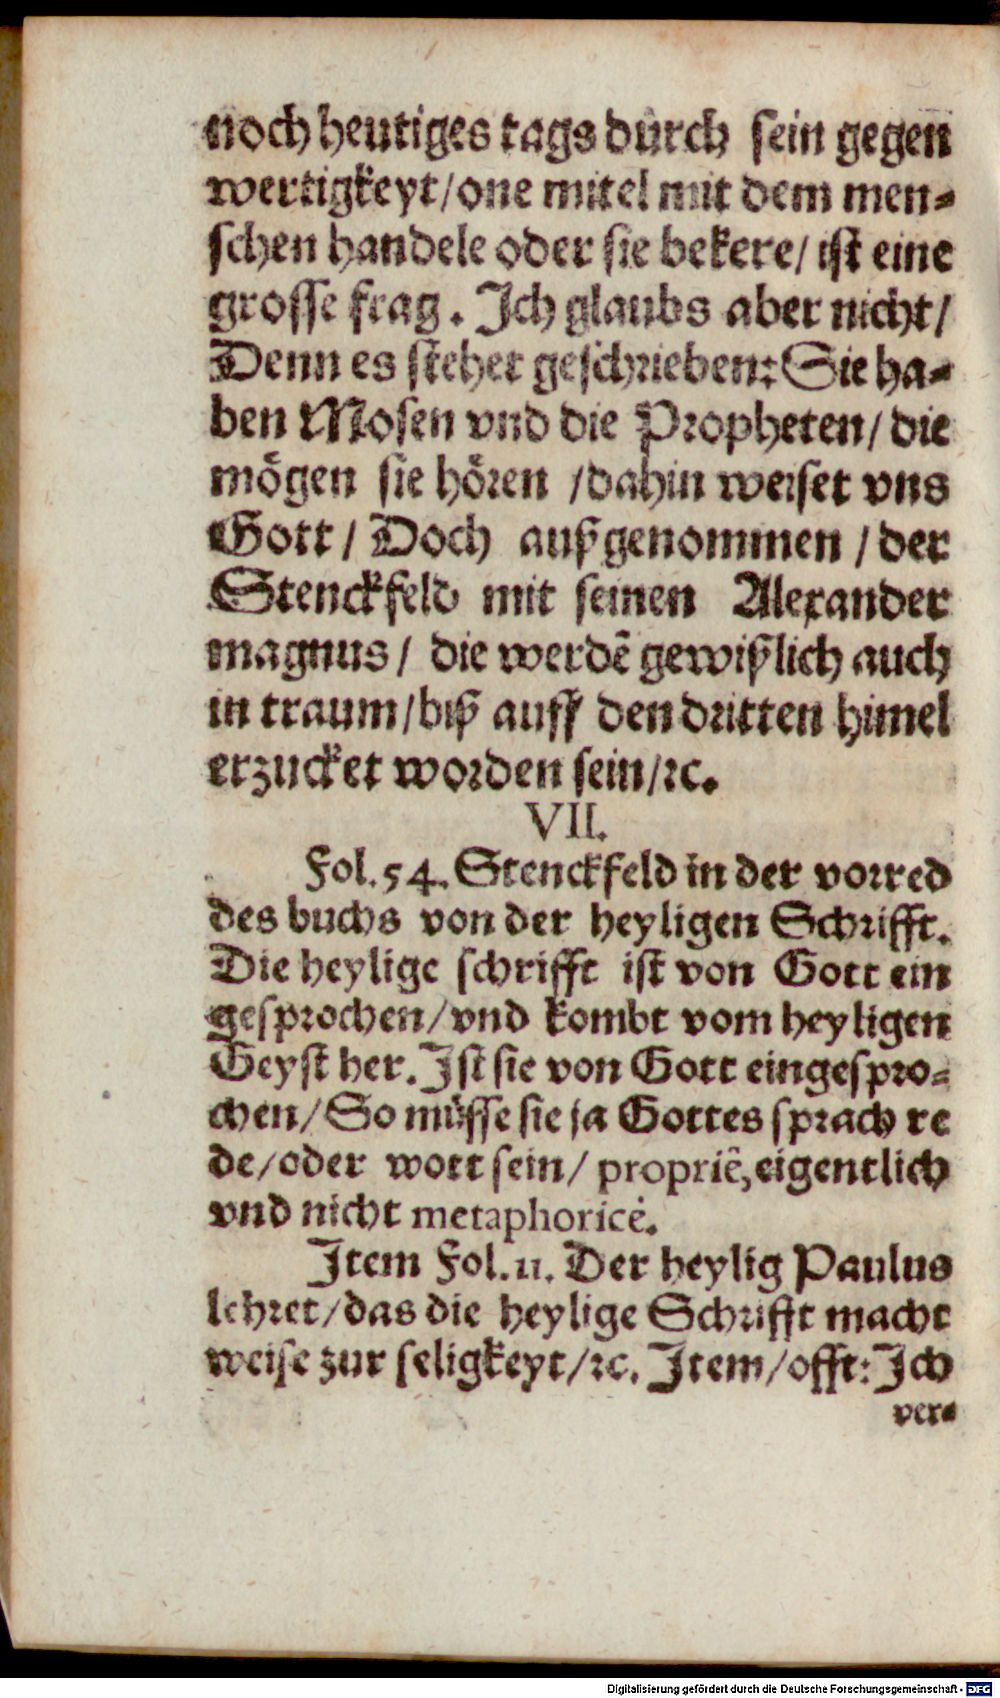 noch heutiges tags durch sein gegen
wertigkeyt/one mitel mit dem men⸗
schen handele oder sie bekere/ ist eine
grosse frag. Ich glaubs aber nicht/
Denn es stehet geschrieben: Sie ha⸗
ben Mosen vnd die Propheten/ die
mögen sie hören /dahin weiset vns
Gott/ Doch außgenommen /der
Stenckfeld mit seinen Alexander
magnus/ die werdē gewißlich auch
in traum/biß auff den dritten himel
erzucket worden sein/ꝛc.
VII.
Fol. 54. Stenckfeld in der vorred
des buchs von der heyligen Schrifft.
Die heylige schrifft ist von Gott ein
gesprochen/vnd kombt vom heyligen
Geyst her. Ist sie von Gott eingespro⸗
chen/ So müsse sie ja Gottes sprach re
de/oder wort sein/ propriè, eigentlich
vnd nicht metaphoricè.
Item Fol. 11. Der heylig Paulus
lehret/das die heylige Schrifft macht
weise zur seligkeyt/ꝛc. Item/offt: Ich
ver⸗
Digitalisierung gefördert durch die Deutsche Forschungsgemeinschaft - DFG